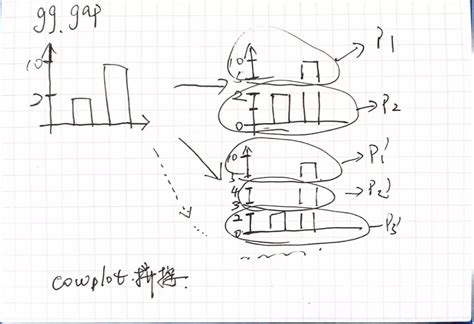 gg.gap
10
2
10
5
P1
2
0
P2
10
5
P1'
4
3
P2'
2
0
P3'
cowplot.拼接.